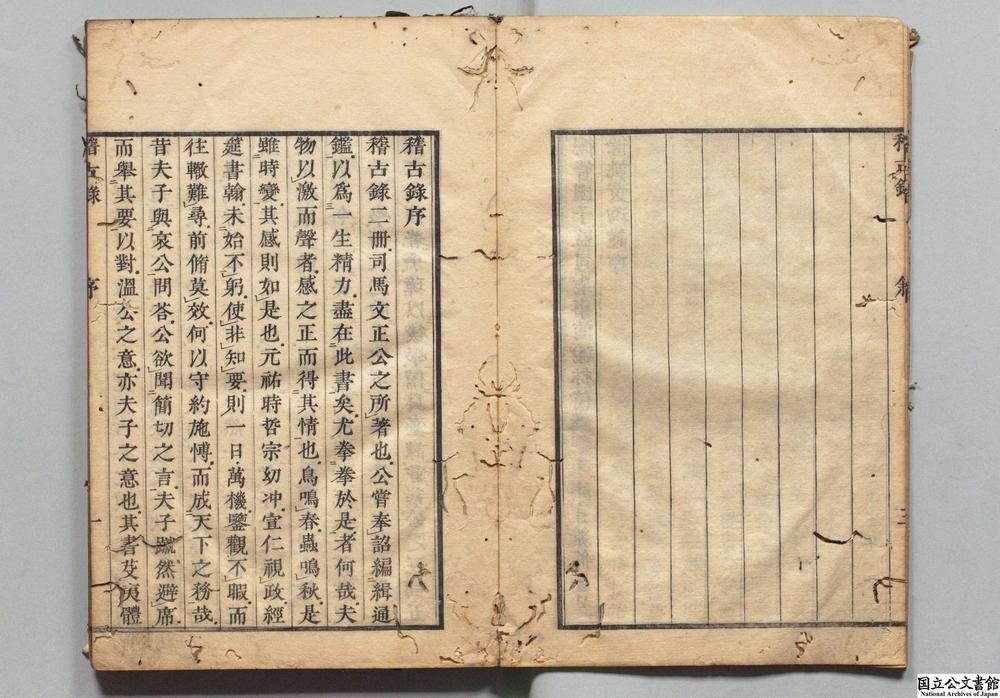 稽古錄序
稽古錄一冊司馬文正公之所著也公嘗奉詔編緝通
鑑以爲一生精力盡在此書矣尤拳拳於是者何哉夫
物以激而聲者感之正而得其情也鳥鳴春蟲鳴秋是
雖時變其感則如是也元祐時哲宗幼冲宣仁視政經
筵書翰未始不躬使非知要則一日萬機鑒觀不暇而
往轍難尋前脩莫效何以守約施愽而成天下之務哉
昔夫子與哀公問答公欲聞簡切之言夫子蹴然避席
而舉其要以對溫公之意亦夫子之意也其書芟庚體
稽古錄 序 一
国立公文書館
National Archives of Japan